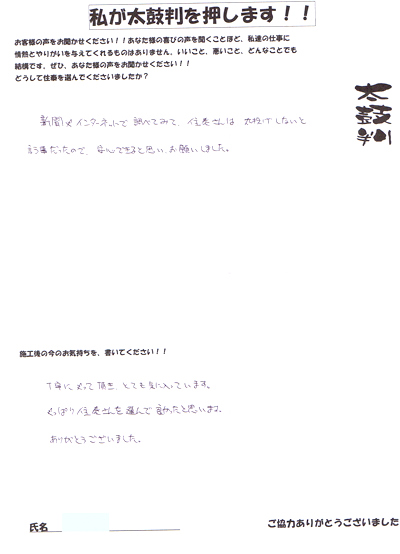 私が太鼓判を押します！！
お客様の声をお聞かせください！！あなた様の喜びの声を聞くことほど、私達の仕事に
情熱とやりがいを与えてくれるものはありません。いいこと、悪いこと、どんなことでも
結構です、ぜひ、あなた様の声をお聞かせください！！
どうして住泰を選んでくださいましたか？
太鼓判
新聞やインターネットで調べてみて、住泰さんは 丸投げしないと
言う事だったので、安心できると思い、お願いしました。
施工後の今のお気持ちを、書いてください！！
丁寧にやって頂き、とても気に入っています。
やっぱり住泰さんを選んで良かったと思います。
ありがとうございました。
氏名
ご協力ありがとうございました